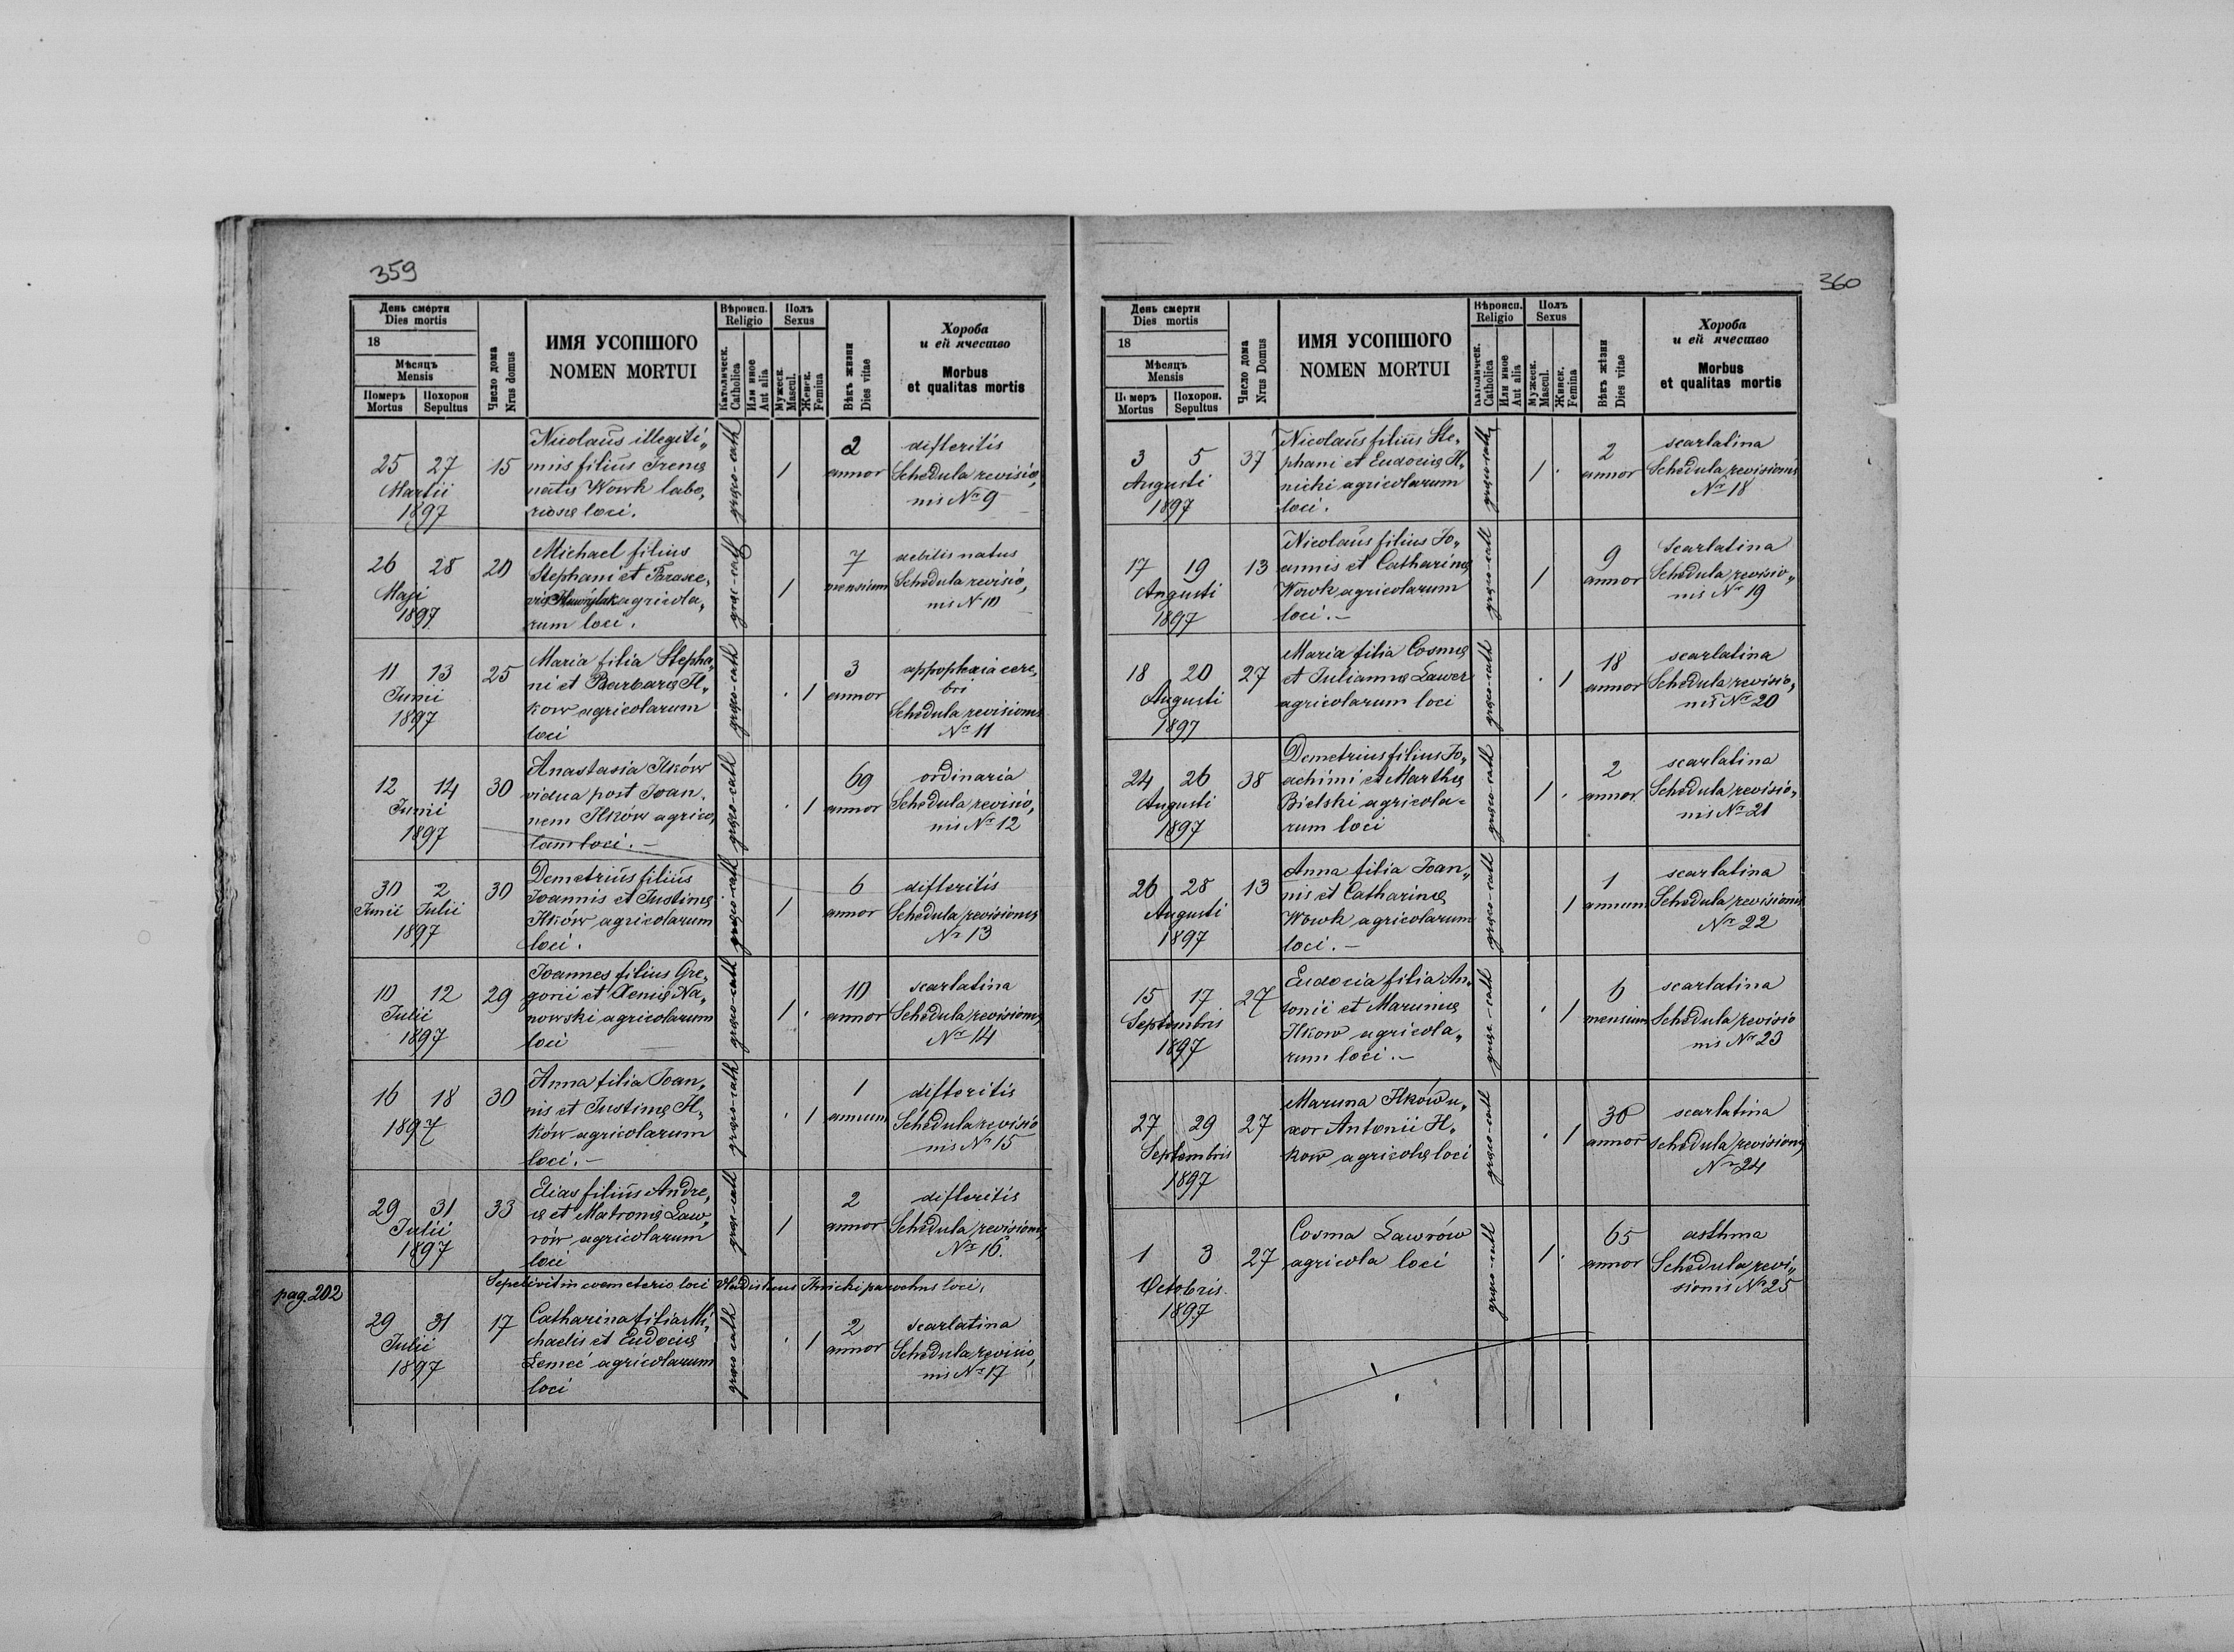 359
День смерти
Dies mortis
18
Мѣсяць
Mensis
Померъ
Mortus
Похорон
Sepultus
Число дома
Nrus domus
ИМЯ УСОПШОГО
NOMEN MORTUI
Вѣроисп.
Religio
Католическ.
Catholica
Или иное
Aut alia
Полъ
Sexus
Мужеск.
Mascul.
Женск.
Femina
Вѣкъ жизни
Dies vitae
Хороба
и ей ячество
Morbus
et qualitas mortis
25 27 15
Martii
1897
Nicolaus illegiti„
mus filius Irenæ
natæ Wowk labo„
riosæ loci.
græco-cath
1
2
annor
difteritis
Schedula revisio„
nis Nr 9
26 28 20
Maji
1897
Michael filius
Stephani et Parasce„
viæ Hawrylak agricola„
rum loci.
græc-cath
1
7
mensium
debilis natus
Schedula revisio„
nis N 10
11 13 25
Junii
1897
Maria filia Stepha„
ni et Barbaræ Il„
kow agricolarum
loci
græco-cath
1
3
annor
appoplexia cere„
bri
Schedula revisionis
Nr 11
12 14 30
Junii
1897
Anastasia Ilków
vidua post Joan„
nem Ilków agrico„
lam loci. –
græco-cath
1
69
annor
ordinaria
Schedula revisio„
nis Nr 12
30 2 30
Junii Julii
1897
Demetrius filius
Joannis et Justinæ
Ilków agricolarum
loci.
græco-cath
1
6
annor
difteritis
Schedula revisionis
Nr 13
10 12 29
Julii
1897
Joannes filius Gre„
gorii et Xeniæ Na„
nowski agricolarum
loci
græco-cath
1
10
annor
scarlatina
Schedula revisionis
Nr 14
16 18 30
1897
Anna filia Joan„
nis et Justinæ Il„
ków agricolarum
loci. –
græco-cath
1
1
annum
difteritis
Schedula revisio
nis Nr 15
29 31 33
Julii
1897
Elias filius Andre„
æ et Matronæ Law„
rów agricolarum
loci
græc-cath
1
2
annor
difteritis
Schedula revisionis
Nr 16.
Sepelivit in coemeterio loci Vladislaus Ilnicki parochus loci.
pag. 202
29 31 17
Julii
1897
Catharina filia Mi„
chaelis et Eudociæ
Lemec agricolarum
loci
græco cath
1
2
annor
scarlatina
Schedula revisio„
nis Nr 17
360
День смерти
Dies mortis
18
Мѣсяць
Mensis
Померъ
Mortus
Похорон.
Sepultus
Число дома
Nrus Domus
ИМЯ УСОПШОГО
NOMEN MORTUI
Вѣроисп.
Religio
Католическ.
Catholica
Или иное
Aut alia
Полъ
Sexus
Мужеск.
Mascul.
Жинск.
Femina
Вѣкъ жѣзни
Dies vitae
Хороба
и ей ячество
Morbus
et qualitas mortis
3 5 37
Augusti
1897
Nicolaus filius Ste„
phani et Eudociæ Il„
nicki agricolarum
loci.
græco-cath
1
2
annor
scarlatina
Schedula revisionis
Nr 18
17 19 13
Augusti
1897
Nicolaus filius Jo„
annis et Catharinæ
Wowk agricolarum
loci. –
græco-cath
1
9
annor
scarlatina
Schedula revisio„
nis Nr 19
18 20 27
Augusti
1897
Maria filia Cosmæ
et Juliannæ Lawer
agricolarum loci
græco-cath
1
18
annor
scarlatina
Schedula revisio„
nis Nr 20
24 26 38
Augusti
1897
Demetrius filius Jo„
achimi et Marthæ
Bielski agricola-
rum loci
græco-cath
1
2
annor
scarlatina
Schedula revisio„
nis Nr 21
26 28 13
Augusti
1897
Anna filia Joan„
nis et Catharinæ
Wowk agricolarum
loci. –
græco-cath
1
1
annum
scarlatina
Schedula revisionis
Nr 22
15 17 27
Septembris
1897
Eudocia filia An„
tonii et Marunæ
Ilkow agricola„
rum loci. –
græc-cath
1
6
mensium
scarlatina
Schedula revisio
nis Nr 23
27 29 27
Septembris
1897
Maruna Ilków u„
xor Antonii Il„
kow agricolæ loci
græco-cath
1
36
annor
scarlatina
schedula revisionis
Nr 24
1 3 27
Octobris
1897
Cosma Lawrów
agricola loci
græco-cath
1
65
annor
asthma
Schedula revi„
sionis Nr 25